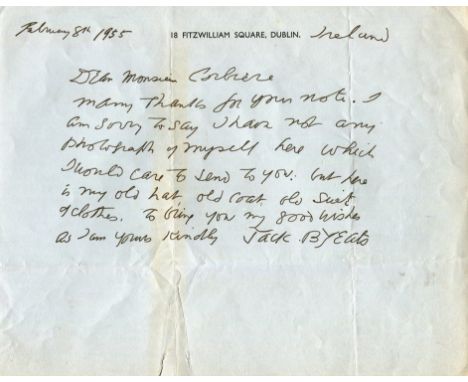 February 8th 1955 18 FITZWILLIAM SQUARE, DUBLIN. Ireland
Dear Monsieur Corbiere
many thanks for your note. I
am sorry to say I have not any
photograph of myself here which
I would care to send to you. but here
is my old hat, old coat old suit
of clothes. To bring you my good wishes
as I am yours kindly Jack B Yeats